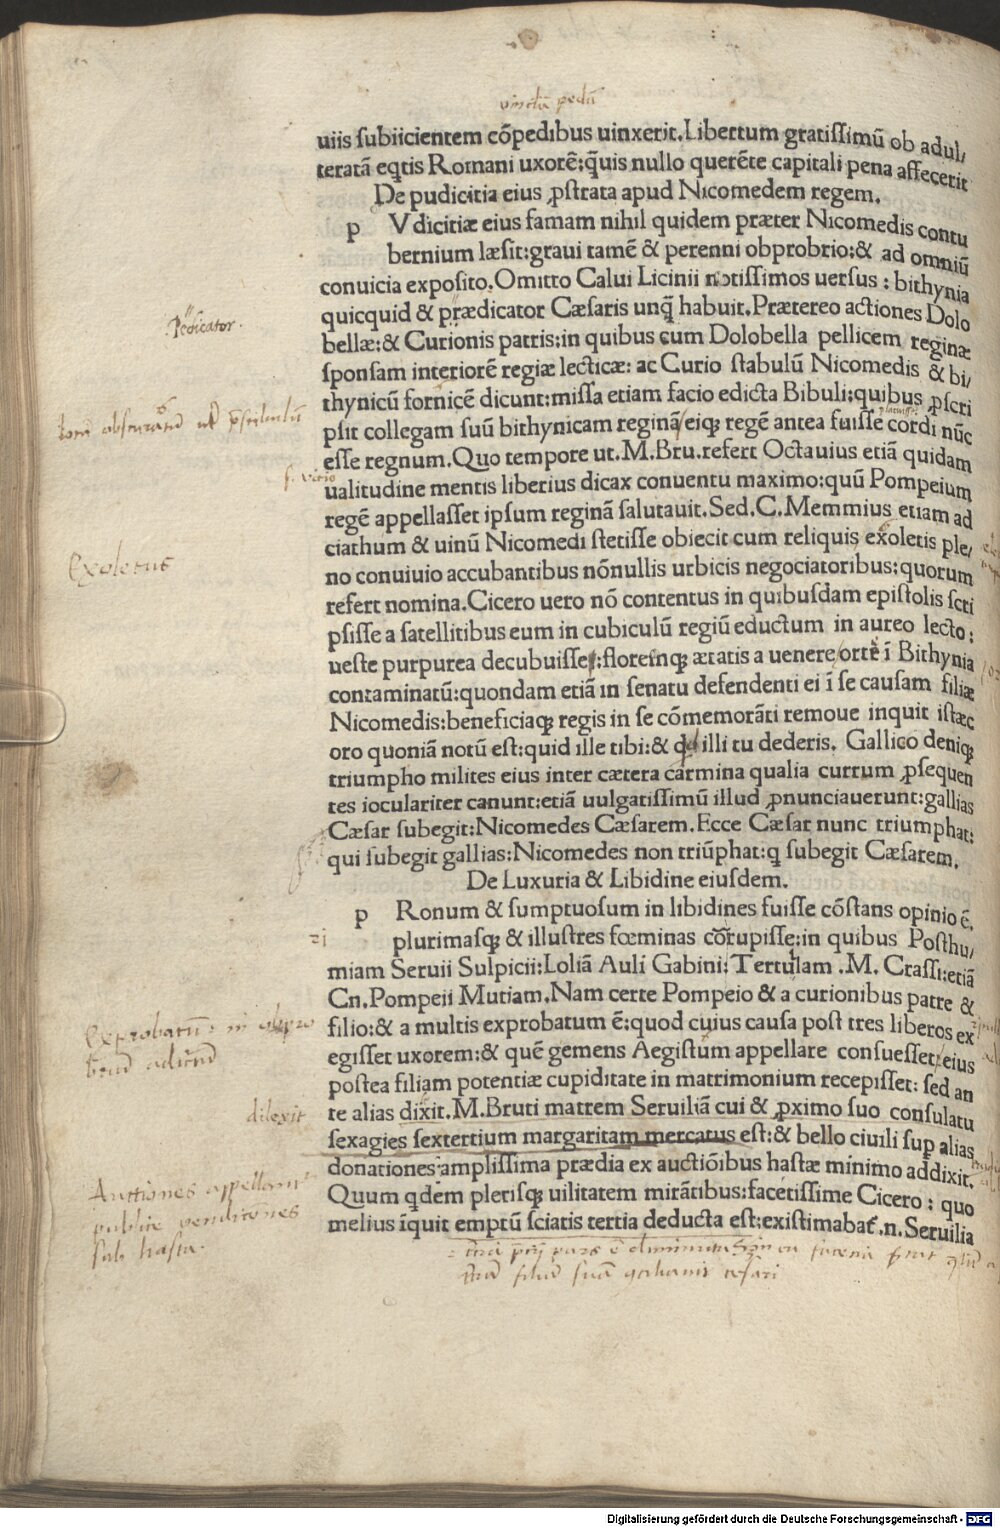 vinctū pedū
uiis subiicientem cōpedibus uinxerit.Libertum gratissimū ob adul/
teratā eq̄tis Romani uxorē:q̄uis nullo querēte capitali pena affecerit
De pudicitia eius ꝓstrata apud Nicomedem regem.
p Vdicitiæ eius famam nihil quidem præter Nicomedis contu
bernium læsit:graui tamē & perenni obprobrio:& ad omniū
conuicia exposito.Omitto Calui Licinii notissimos uersus : bithynia
quicquid & prædicator Cæsaris unq̄ habuit.Prætereo actiones Dolo
Pedicator.
bellæ:& Curionis patris:in quibus cum Dolobella pellicem reginæ
sponsam interiorē regiæ lecticæ: ac Curio stabulū Nicomedis & bi/
thynicū fornicē dicunt:missa etiam facio edicta Bibuli:quibus ꝓscri
psit collegam suū bithynicam reginā/eiqꝫ regē antea fuisse cordi nūc
esse regnum.Quo tempore ut.M.Bru.refert Octauius etiā quidam
ualitudine mentis liberius dicax conuentu maximo:quū Pompeium
regē appellasset ipsum reginā salutauit.Sed.C.Memmius etiam ad
ciathum & uinū Nicomedi stetisse obiecit cum reliquis exoletis ple/
Exoletus
no conuiuio accubantibus nōnullis urbicis negociatoribus:quorum
refert nomina.Cicero uero nō contentus in quibusdam epistolis scri
psisse a satellitibus eum in cubiculū regiū eductum in aureo lecto:
ueste purpurea decubuisse:floremqꝫ ætatis a uenere ortē ī Bithynia
contaminatū:quondam etiā in senatu defendenti ei ī se causam filiæ
Nicomedis:beneficiaqꝫ regis in se cōmemorāti remoue inquit istæc
oro quoniā notū est:quid ille tibi:& qd illi tu dederis. Gallico deniqꝫ
triumpho milites eius inter cætera carmina qualia currum ꝓsequen
tes ioculariter canunt:etiā uulgatissimū illud ꝓnunciauerunt:gallias
Cæsar subegit:Nicomedes Cæsarem.Ecce Cæsar nunc triumphat:
qui subegit gallias:Nicomedes non triūphat:q subegit Cæsarem.
De Luxuria & Libidine eiusdem.
p Ronum & sumptuosum in libidines fuisse cōstans opinio ē.
plurimasqꝫ & illustres fœminas corupisse:in quibus Posthu/
miam Seruii Sulpicii:Loliā Auli Gabini: Tertulam .M. Crassi:etiā
Cn.Pompeii Mutiam.Nam certe Pompeio & a curionibus patre &
filio:& a multis exprobatum ē:quod cuius causa post tres liberos ex
Exprobatū
egisset uxorem:& quē gemens Aegistum appellare consuesset:eius
postea filiam potentiæ cupiditate in matrimonium recepisset: sed an
te alias dixit.M.Bruti matrem Seruiliā cui & ꝓximo suo consulatu
dilexit
sexagies sextertium margaritam mercatus est:& bello ciuili sup alias
donationes amplissima prædia ex auctiōibus hastæ minimo addixit.
Auctiones appellant
publice venditiones
sub hasta.
Quum qdem plerisqꝫ uilitatem mirātibus:facetissime Cicero : quo
melius īquit emptū sciatis tertia deducta est:existimabat̄ .n. Seruilia
Digitalisierung gefördert durch die Deutsche Forschungsgemeinschaft - DFG